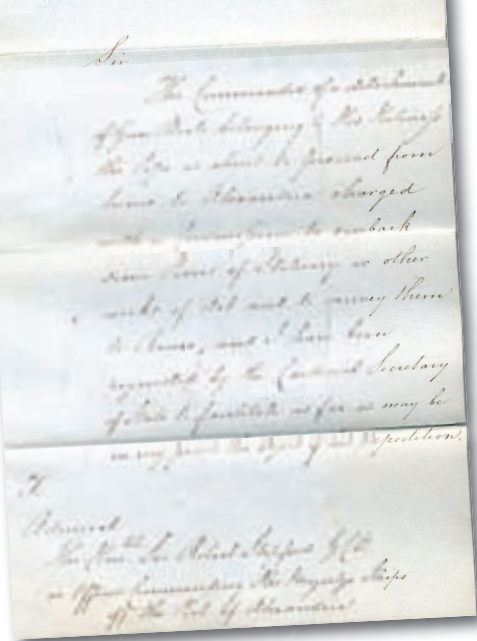 Sir
The Commander of a detachment
of Gun Boats belonging to His Holiness
the Pope is about to proceed from
hence to Alexandria charged
with a to embark
some of Statuary or other
works of Art and to convey them
to Rome, and I have been
requested by the Cardinal Secretary
of State to facilitate as far as may be
in my power the object of this Expedition.
Admiral
The Honble Sir Robert Stopford GCB
or Officer Commanding Her Majesty's Ships
off the Port of Alexandria